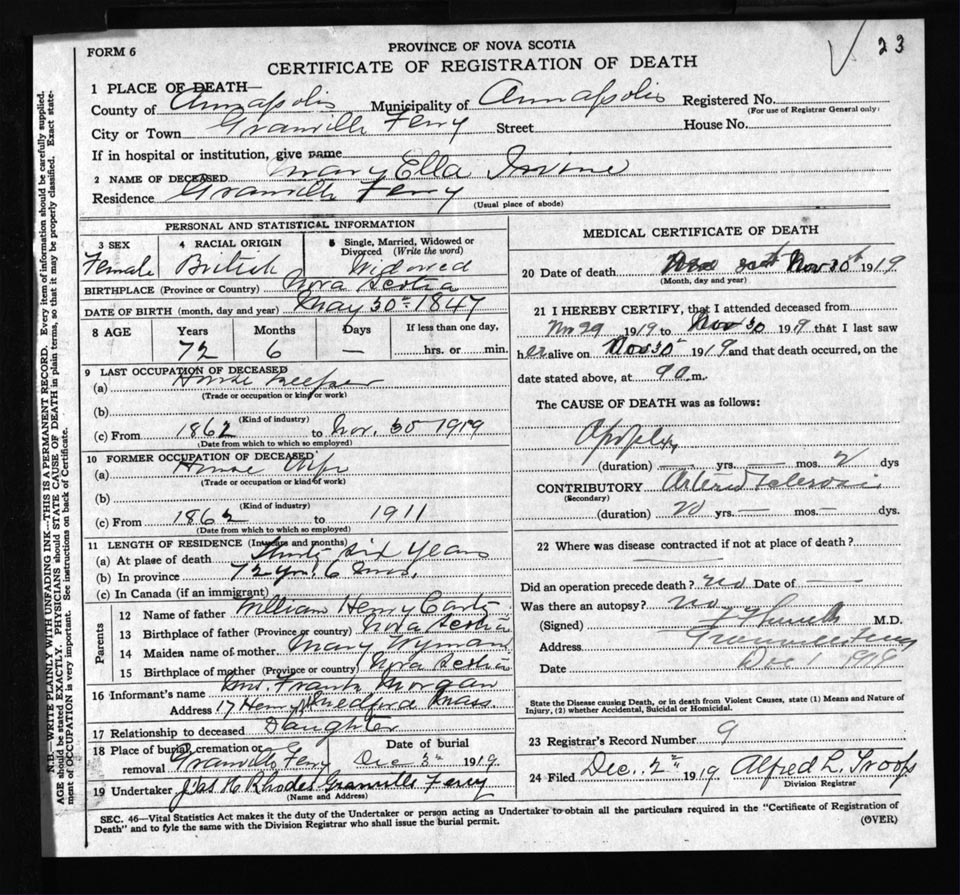 23
FORM 6
PROVINCE OF NOVA SCOTIA
CERTIFICATE OF REGISTRATION OF DEATH
1 PLACE OF DEATH—
County of Annapolis Municipality of Annapolis Registered No.
(For use of Registrar General only)
City or Town Granville Ferry Street House No.
If in hospital or institution, give name
2 NAME OF DECEASED Mary Ella Irvine
Residence Granville Ferry
(Usual place of abode)
PERSONAL AND STATISTICAL INFORMATION
3 SEX
Female
4 RACIAL ORIGIN
British
5 Single, Married, Widowed or Divorced (Write the word)
Widowed
BIRTHPLACE (Province or Country) Nova Scotia
DATE OF BIRTH (month, day and year) May 30th 1847
8 AGE Years Months Days If less than one day,
72 6 — hrs. or min.
9 LAST OCCUPATION OF DECEASED
(a) House keeper
(Trade or occupation or kind of work)
(b)
(Kind of industry)
(c) From 1862 to Nov. 30 1919
(Date from which to which so employed)
10 FORMER OCCUPATION OF DECEASED
(a) House Wife
(Trade or occupation or kind of work)
(b)
(Kind of industry)
(c) From 1862 to 1911
(Date from which to which so employed)
11 LENGTH OF RESIDENCE (In years and months)
(a) At place of death Thirty six years
(b) In province 72 yrs. 6 mos.
(c) In Canada (if an immigrant)
Parents
12 Name of father William Henry
13 Birthplace of father (Province or country) Nova Scotia
14 Maiden name of mother Mary Wyman
15 Birthplace of mother (Province or country) Nova Scotia
16 Informant's name Mrs. Frank Morgan
Address 17 Henry Medford Mass.
17 Relationship to deceased Daughter
18 Place of burial, cremation or removal Granville Ferry
Date of burial
Dec 3rd 1919
19 Undertaker Jas R Rhodes Granville Ferry
(Name and Address)
MEDICAL CERTIFICATE OF DEATH
20 Date of death Nov 30th 1919
(Month, day and year)
21 I HEREBY CERTIFY, that I attended deceased from
Nov 29 1919 to Nov 30 1919 that I last saw
her alive on Nov 30th 1919 and that death occurred, on the
date stated above, at 9 a.m.
The CAUSE OF DEATH was as follows:
Apoplexy
(duration) — yrs. — mos. 2 dys
CONTRIBUTORY Arterio Sclerosis
(Secondary)
(duration) yrs. — mos. — dys.
22 Where was disease contracted if not at place of death?
Did an operation precede death? no Date of —
Was there an autopsy? no
(Signed) M.D.
Address Granville Ferry
Date Dec 1 1919
State the Disease causing Death, or in death from Violent Causes, state (1) Means and Nature of
Injury, (2) whether Accidental, Suicidal or Homicidal.
23 Registrar's Record Number 9
24 Filed Dec. 2nd 1919 Alfred L. Troop
Division Registrar
SEC. 46—Vital Statistics Act makes it the duty of the Undertaker or person acting as Undertaker to obtain all the particulars required in the "Certificate of Registration of
Death" and to fyle the same with the Division Registrar who shall issue the burial permit.
(OVER)
N.B.—WRITE PLAINLY WITH UNFADING INK—THIS IS A PERMANENT RECORD. Every item of information should be carefully supplied.
AGE should be stated EXACTLY. PHYSICIANS should STATE CAUSE OF DEATH in plain terms, so that it may be properly classified. Exact state-
ment of OCCUPATION is very important. See instructions on back of Certificate.